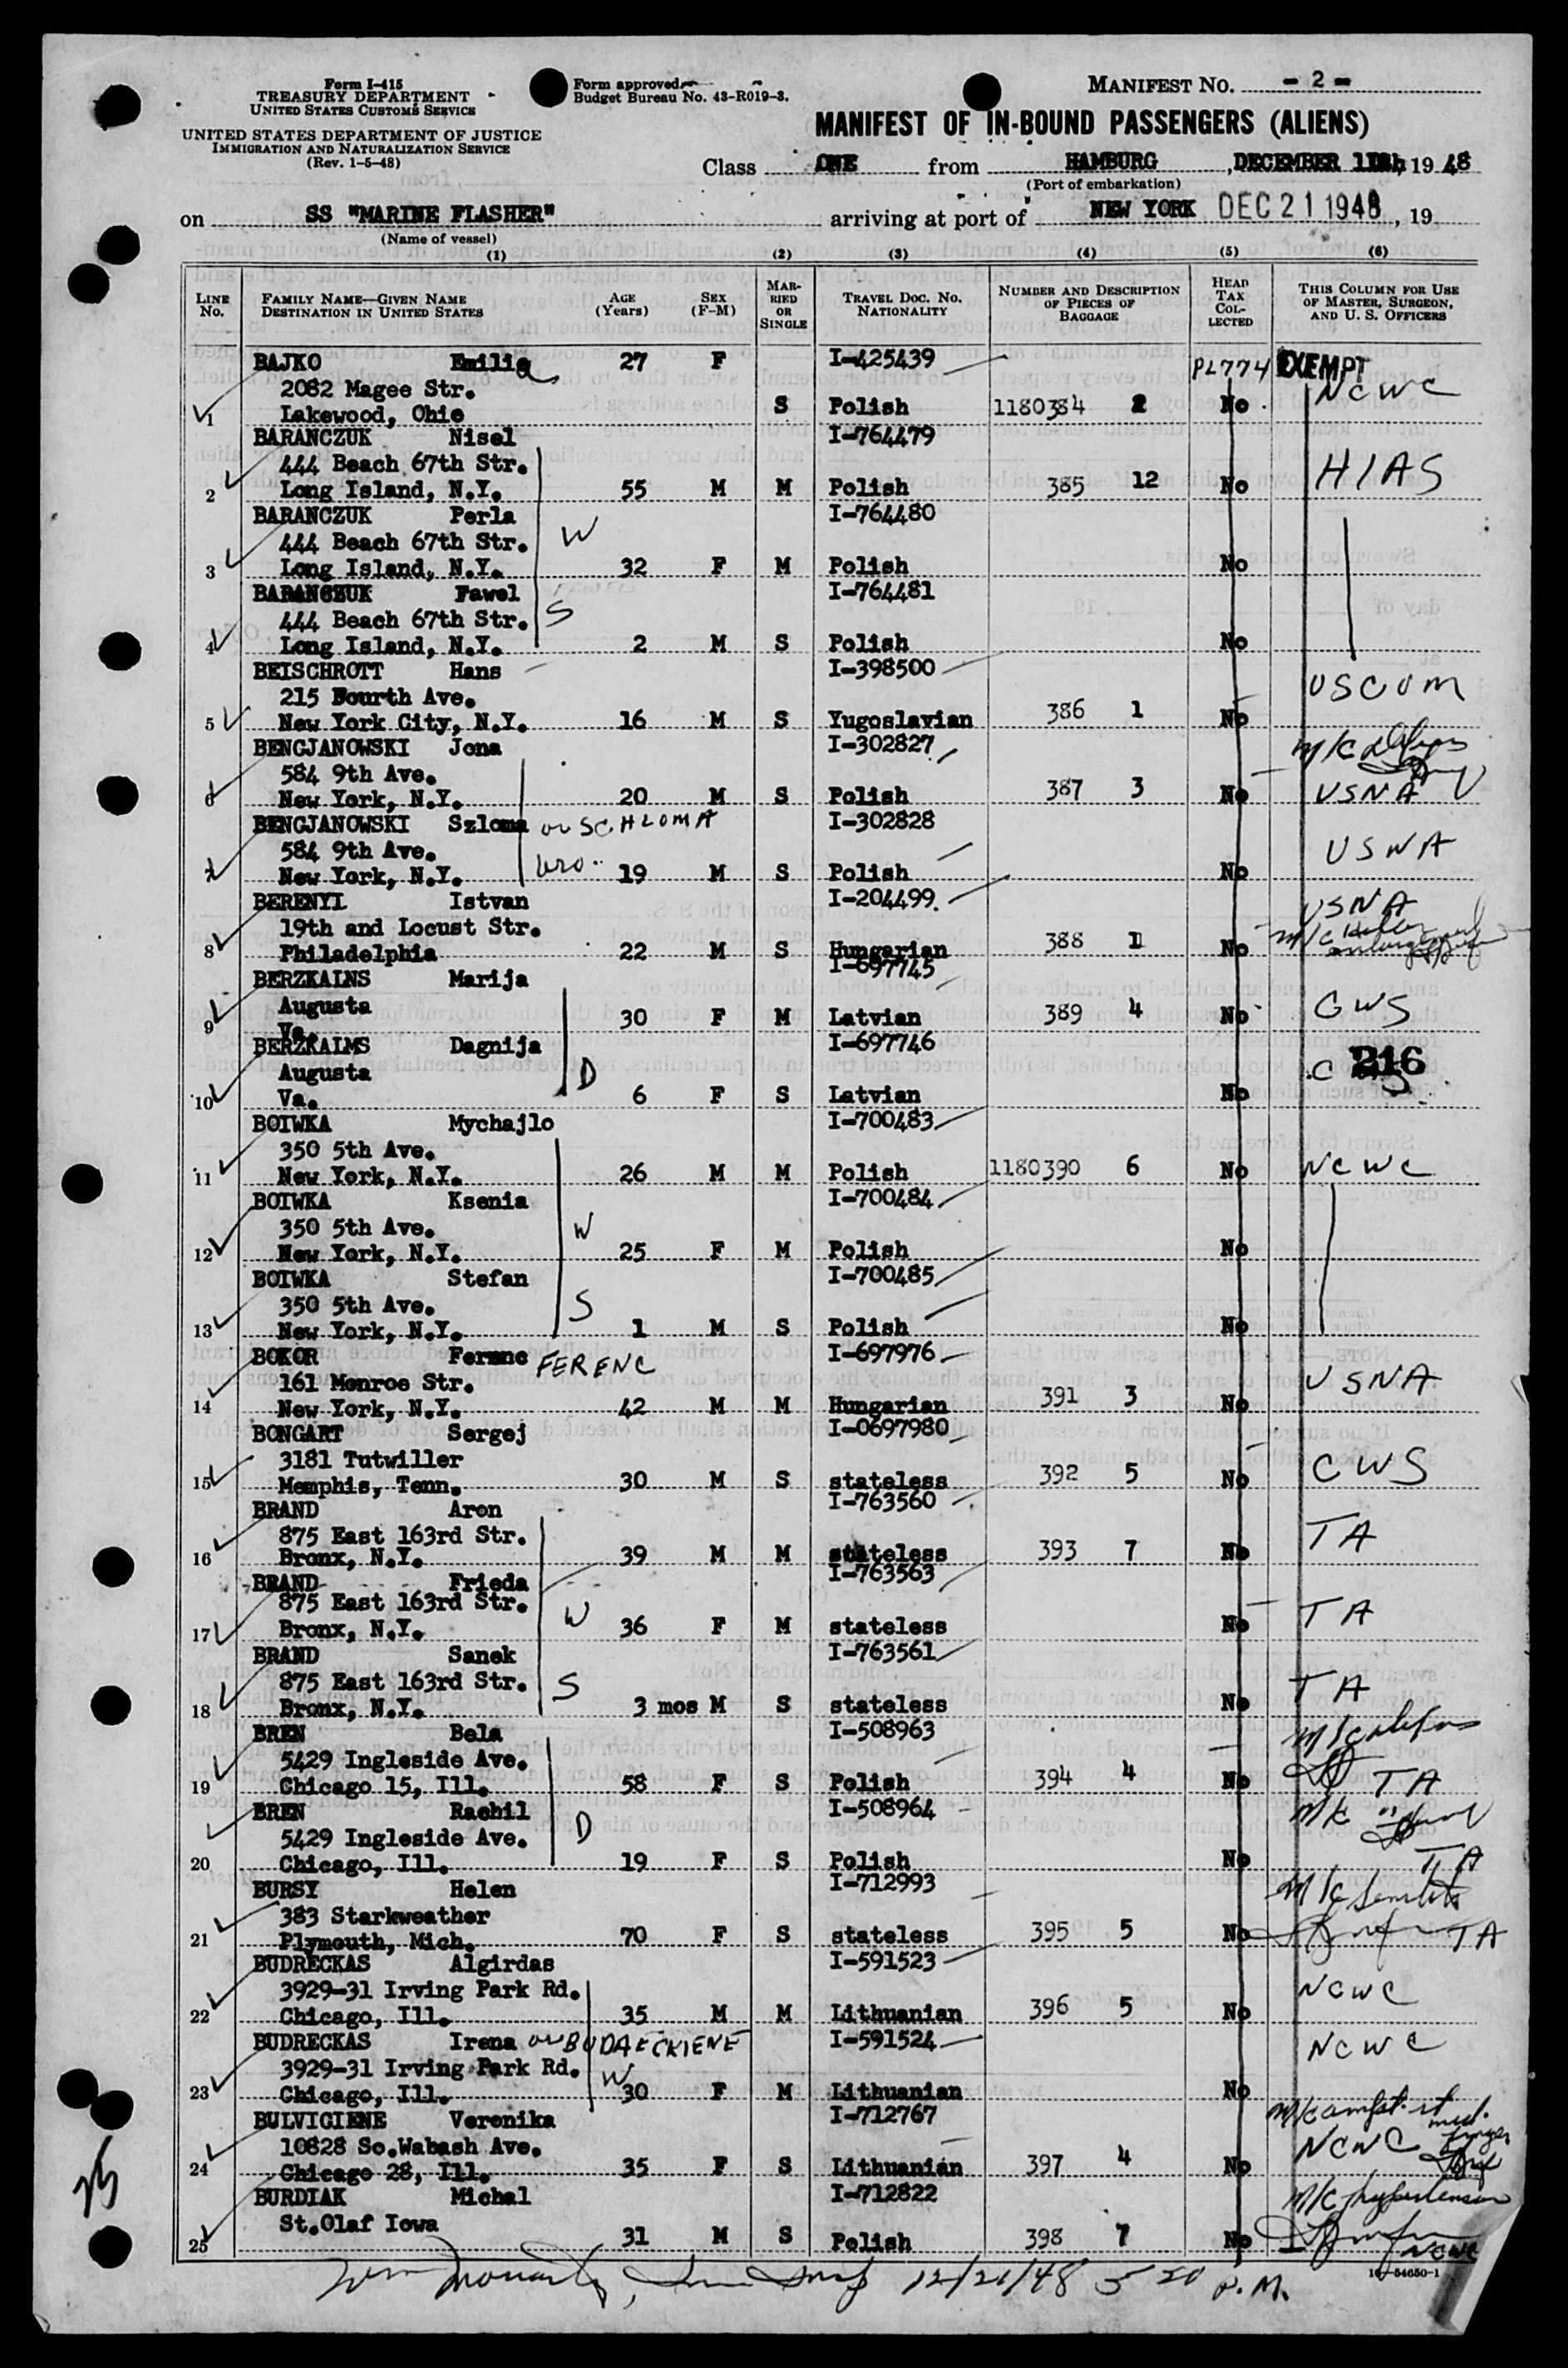 Form I-415
TREASURY DEPARTMENT
UNITED STATES CUSTOMS SERVICE
UNITED STATES DEPARTMENT OF JUSTICE
IMMIGRATION AND NATURALIZATION SERVICE
(Rev. 1-5-48)
Form approved.
Budget Bureau No. 43-R019-3.
MANIFEST NO. - 2 -
MANIFEST OF IN-BOUND PASSENGERS (ALIENS)
Class ONE from HAMBURG, DECEMBER 11th, 1948
(Port of embarkation)
on SS "MARINE FLASHER" arriving at port of NEW YORK DEC 21 1948, 19
(Name of vessel)
(1) (2) (3) (4) (5) (6)
LINE No. FAMILY NAME—GIVEN NAME DESTINATION IN UNITED STATES AGE (Years) SEX (F-M) MARRIED OR SINGLE TRAVEL DOC. No. NATIONALITY NUMBER AND DESCRIPTION OF PIECES OF BAGGAGE HEAD TAX COLLECTED THIS COLUMN FOR USE OF MASTER, SURGEON, AND U. S. OFFICERS
BAJKO Emilia 27 F I-425439 PL774 EXEMPT
2082 Magee Str. NCWC
1 Lakewood, Ohio S Polish 1180384 2 No
BARANCZUK Nisel I-764479
444 Beach 67th Str. HIAS
2 Long Island, N.Y. 55 M M Polish 385 12 No
BARANCZUK Perla I-764480
444 Beach 67th Str. W
3 Long Island, N.Y. 32 F M Polish No
BARANCZUK Pawel I-764481
444 Beach 67th Str. S
4 Long Island, N.Y. 2 M S Polish No
BEISCHROTT Hans I-398500
215 Fourth Ave. USCOM
5 New York City, N.Y. 16 M S Yugoslavian 386 1 No
BENGJANOWSKI Jona I-302827 M/C
584 9th Ave.
6 New York, N.Y. 20 M S Polish 387 3 No USNA
BENGJANOWSKI Szloma or SCHLOMA I-302828
584 9th Ave. USNA
7 New York, N.Y. bro. 19 M S Polish No
BERENYI Istvan I-204499 USNA
19th and Locust Str. M/C
8 Philadelphia 22 M S Hungarian 388 1 No
BERZKALNS Marija I-697745
Augusta CWS
9 Va. 30 F M Latvian 389 4 No
BERZKALMS Dagnija I-697746 216
Augusta D
10 Va. 6 F S Latvian No
BOIWKA Mychajlo I-700483
350 5th Ave.
11 New York, N.Y. 26 M M Polish 1180390 6 No NCWC
BOIWKA Ksenia I-700484
350 5th Ave. W
12 New York, N.Y. 25 F M Polish No
BOIWKA Stefan I-700485
350 5th Ave. S
13 New York, N.Y. 1 M S Polish No
BOKOR Ferenc FERENC I-697976
161 Monroe Str. USNA
14 New York, N.Y. 42 M M Hungarian 391 3 No
BONGART Sergej I-0697980
3181 Tutwiller CWS
15 Memphis, Tenn. 30 M S stateless 392 5 No
BRAND Aron I-763560
875 East 163rd Str. TA
16 Bronx, N.Y. 39 M M stateless 393 7 No
BRAND Frieda I-763563
875 East 163rd Str. W TA
17 Bronx, N.Y. 36 F M stateless No
BRAND Sanek I-763561
875 East 163rd Str. S TA
18 Bronx, N.Y. 3 mos M S stateless No
BREN Bela I-508963 M/C
5429 Ingleside Ave.
19 Chicago 15, Ill. 58 F S Polish 394 4 No TA
BREN Rachil I-508964 M/C
5429 Ingleside Ave. D
20 Chicago, Ill. 19 F S Polish No TA
BURSY Helen I-712993 M/C
383 Starkweather
21 Plymouth, Mich. 70 F S stateless 395 5 No TA
BUDRECKAS Algirdas I-591523
3929-31 Irving Park Rd. NCWC
22 Chicago, Ill. 35 M M Lithuanian 396 5 No
BUDRECKAS Irena or BUDRECKIENE I-591524 NCWC
3929-31 Irving Park Rd. W
23 Chicago, Ill. 30 F M Lithuanian No
BULVIGIENE Veronika I-712767 M/C
10828 So.Wabash Ave. NCWC
24 Chicago 28, Ill. 35 F S Lithuanian 397 4 No
BURDIAK Michal I-712822 M/C hypertension
St.Olaf Iowa
25 31 M S Polish 398 7 No NCWC
12/21/48 5 20 P.M.
16-54650-1